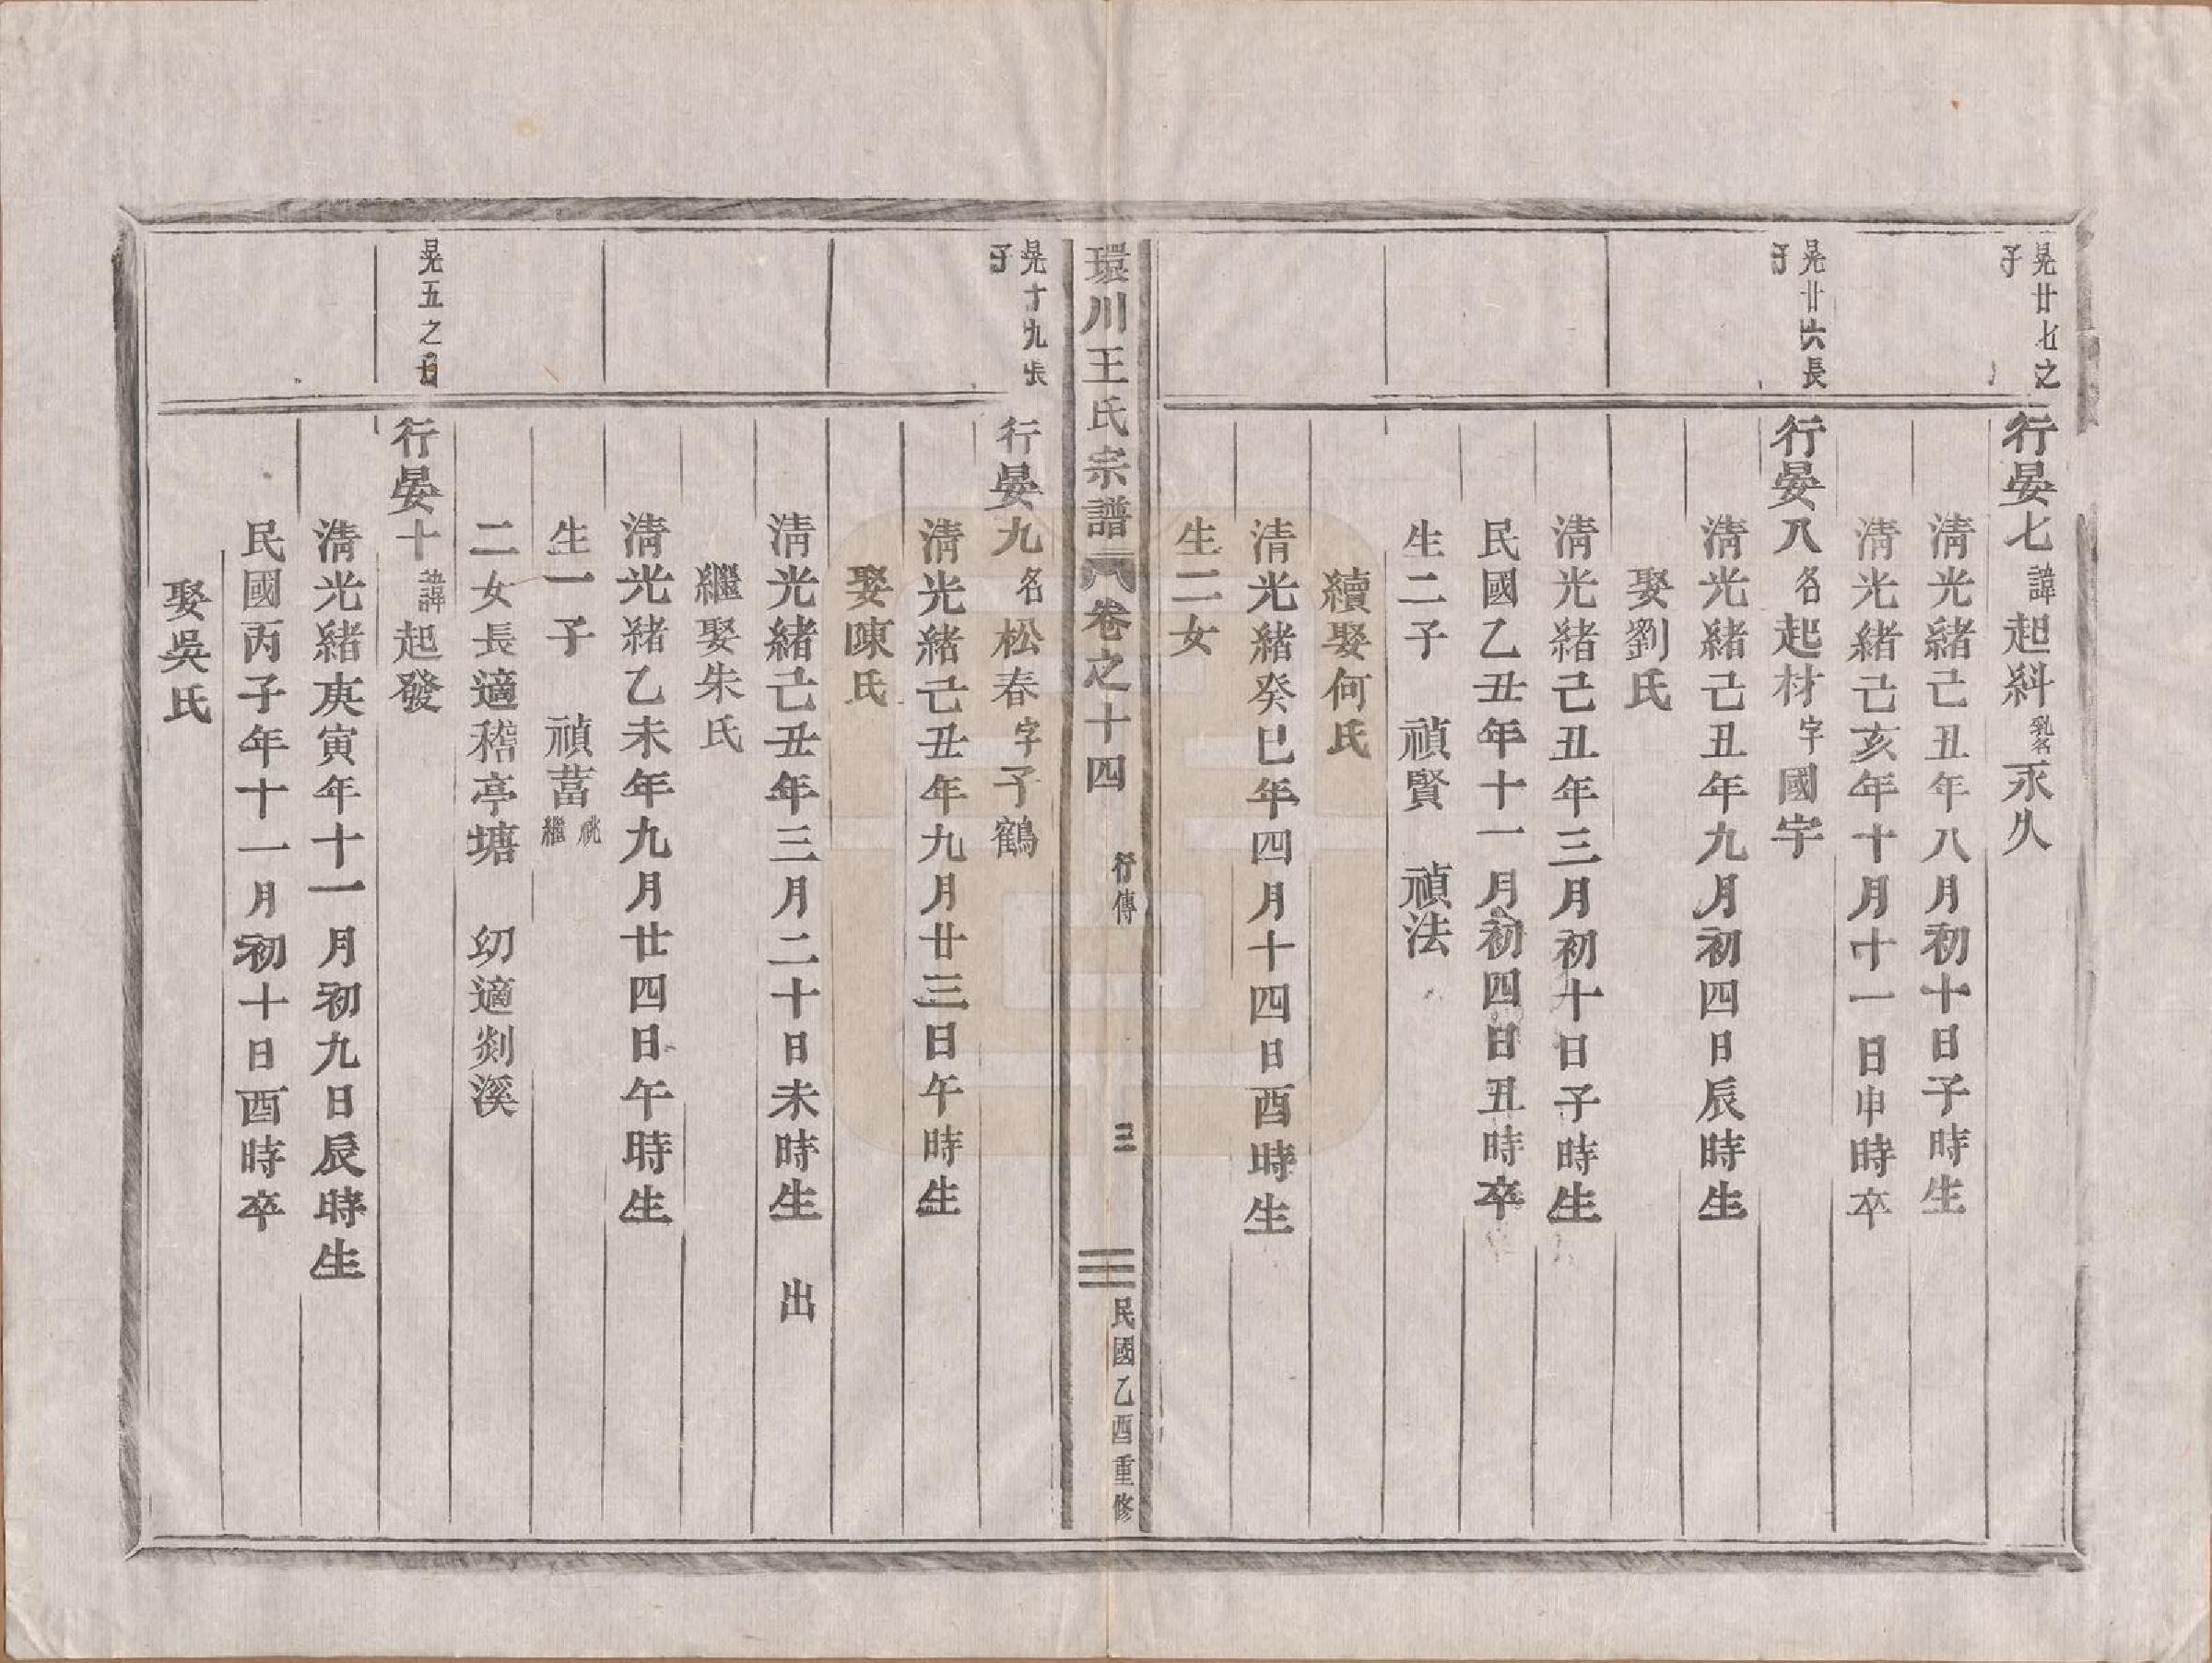 晃廿七之
子
行晏七諱起科乳名永久
清光緒己丑年八月初十日子時生
清光緒己亥年十月十一日申時卒
晃廿六長
子
行晏八名起材字國宇
清光緒己丑年九月初四日辰時生
娶劉氏
清光緒己丑年三月初十日子時生
民國乙丑年十一月初四日丑時卒
生二子 禎賢 禎法
續娶何氏
清光緒癸巳年四月十四日酉時生
生二女
環川王氏宗譜 卷之十四 行傳 三 民國乙酉重修
晃十九長
子
行晏九名松春字子鶴
清光緒己丑年九月廿三日午時生
娶陳氏
清光緒己丑年三月二十日未時生 出
繼娶朱氏
清光緒乙未年九月廿四日午時生
生一子 禎菖祧繼
二女長適稽亭塘 幼適剡溪
晃五之
行晏十諱起發
清光緒庚寅年十一月初九日辰時生
民國丙子年十一月初十日酉時卒
娶吳氏